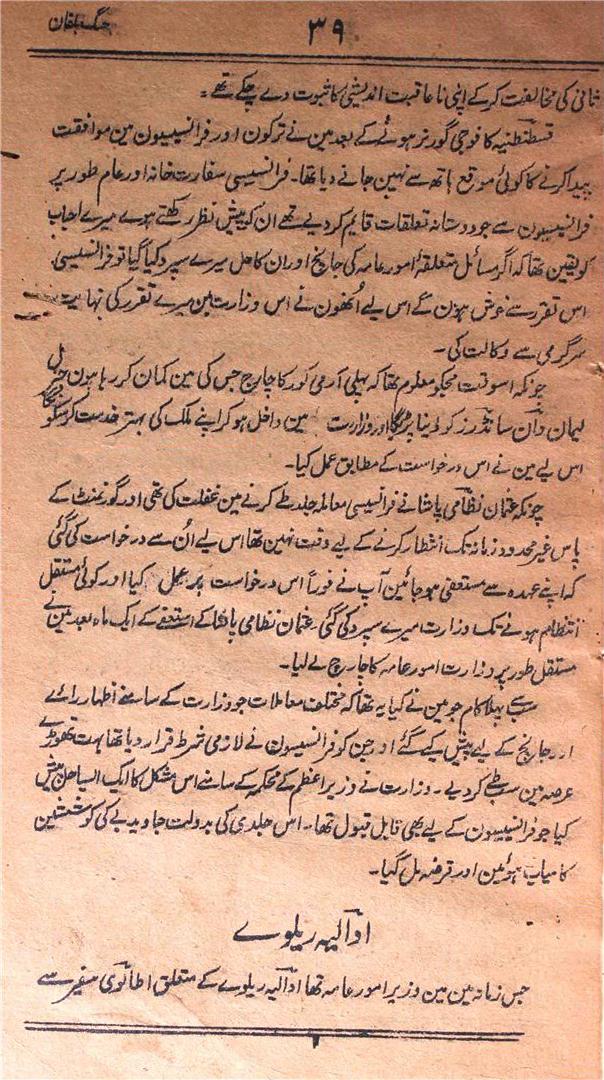 جنگ بلقان
۳۹
ثانی کی مخالفت کرکے اپنی ناعاقبت اندیشی کا ثبوت دے چکے تھے۔
قسطنطنیہ کا فوجی گورنر ہونے کے بعد مین نے ترکون اور فرانسیسیون مین موافقت
پیدا کرنے کا کوئی موقع ہاتھ سے نہین جانے دیا تھا۔ فرانسیسی سفارت خانہ اور عام طور پر
فرانسیسیون سے جو دوستانہ تعلقات قایم کردیے تھے ان کو پیش نظر رکھتے ہوے میرے احباب
کو یقین تھا کہ اگر مسائل متعلقۂ امور عامہ کی جانچ اور ان کا حل میرے سپرد کیا گیا تو فرانسیسی
اس تقرر سے خوش ہون گے اس لیے اُنھون نے اس وزارت مین میرے تقرر کی نہایت
سرگرمی سے وکالت کی۔
چونکہ اسوقت مجکو معلوم تھا کہ پہلی آرمی کور کا چارج جس کی مین کمان کر رہا ہون جنرل
لیمان وان سانڈرز کو دینا پڑیگا اور وزارت مین داخل ہوکر اپنے ملک کی بہتر خدمت کر سکونگا
اس لیے مین نے اس درخواست کے مطابق عمل کیا۔
چونکہ عثمان نظامی پاشا نے فرانسیسی معاملہ جلد طے کرنے مین غفلت کی تھی اور گورنمنٹ کے
پاس غیر محدود زمانہ تک انتظار کرنے کے لیے وقت نہین تھا اس لیے اُن سے درخواست کی گئی
کہ اپنے عہدہ سے مستعفی ہو جائین آپ نے فوراً اس درخواست پر عمل کیا اور کوئی مستقل
انتظام ہونے تک وزارت میرے سپرد کی گئی۔ عثمان نظامی پاشا کے استعفے کے ایک ماہ بعد مین نے
مستقل طور پر وزارت امور عامہ کا چارج لے لیا۔
سب سے پہلا کام جو مین نے کیا یہ تھا کہ مختلف معاملات جو وزارت کے سامنے اظہار رائے
اور جانچ کے لیے پیش کیے گئے اور جن کو فرانسیسون نے لازمی شرط قرار دیا تھا بہت تھوڑے
عرصہ مین سب طے کر دیے۔ وزارت نے وزیر اعظم کے محکمہ کے سامنے اس مشکل کا ایک ایسا حل پیش
کیا جو فرانسیسیون کے لیے بھی قابل قبول تھا۔ اس جلدی کی بدولت جاوید بے کی کوششین
کامیاب ہوئین اور قرضہ مل گیا۔
اڈالیہ ریلوے
جس زمانہ مین مین وزیر امور عامہ تھا اڈالیہ ریلوے کے متعلق اطالوی سفیر سے